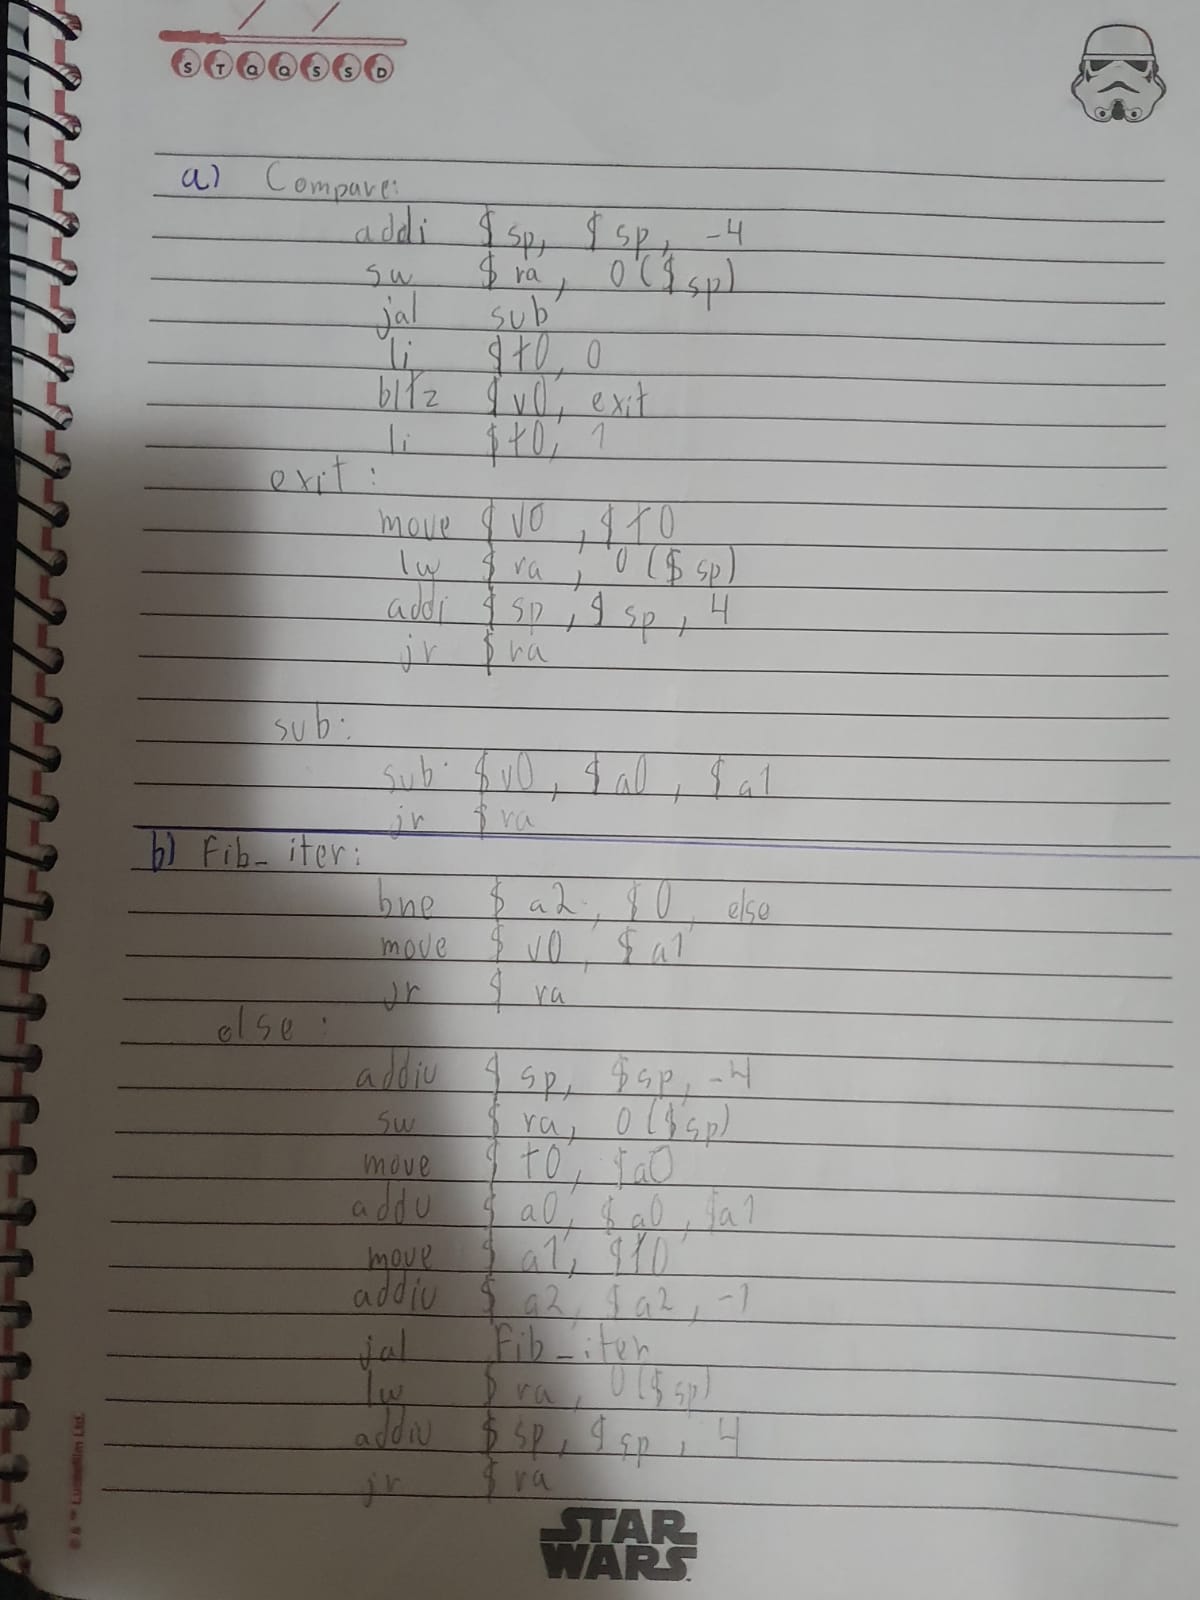 S T Q Q S S D
a) Compare:
addi $sp, $sp, -4
sw $ra, 0($sp)
jal sub
li $t0, 0
bltz $v0, exit
li $t0, 1
exit:
move $v0, $t0
lw $ra, 0($sp)
addi $sp, $sp, 4
jr $ra
sub:
sub $v0, $a0, $a1
jr $ra
b) Fib_iter:
bne $a2, $0, else
move $v0, $a1
jr $ra
else:
addiu $sp, $sp, -4
sw $ra, 0($sp)
move $t0, $a0
addu $a0, $a0, $a1
move $a1, $t0
addiu $a2, $a2, -1
jal Fib_iter
lw $ra, 0($sp)
addiu $sp, $sp, 4
jr $ra
© & ™ Lucasfilm Ltd.
STAR
WARS